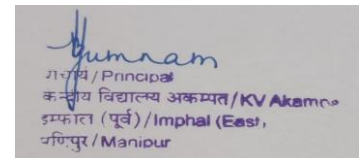 Yumnam
प्राचार्य / Principal
केन्द्रीय विद्यालय अकम्पत / KV Akampat
इम्फाल (पूर्व) / Imphal (East)
मणिपुर / Manipur